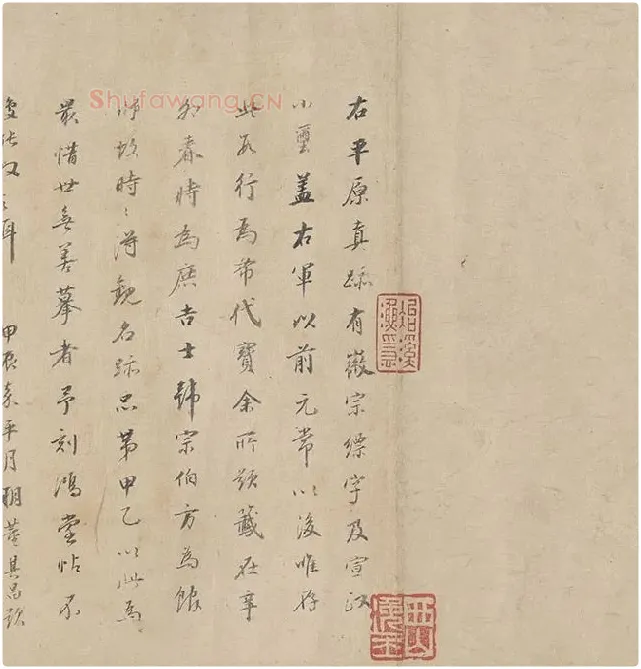 Shufawang.CN
右平原真跡有徽宗縹字及宣政
小璽蓋右軍以前元常以後唯存
此數行為希代寶余所題籤在辛
卯春時為庶吉士韓宗伯方為館
師故時〻得觀名跡品第甲乙以此為
最惜世無善摹者予刻鴻堂帖不
耳 甲辰嘉平月朔董其昌題
西山逸士